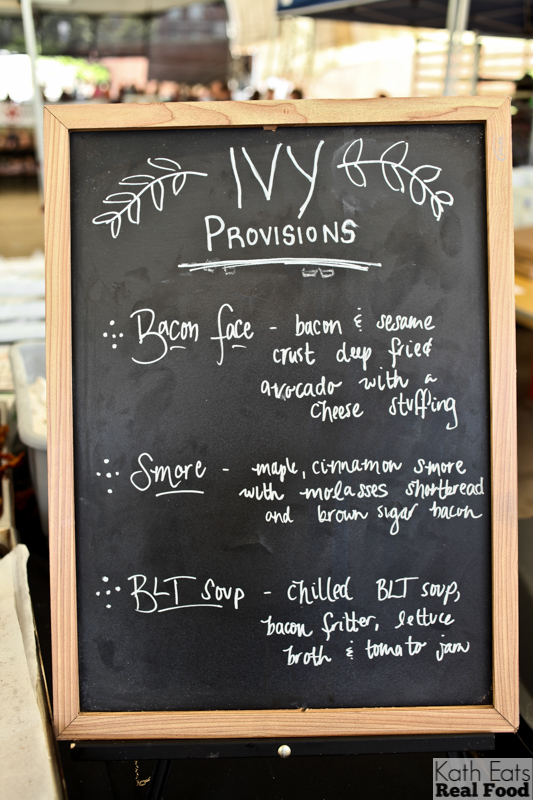 IVY
PROVISIONS
Bacon face - bacon & sesame
crust deep fried
avocado with a
cheese stuffing
Smore - maple, cinnamon smore
with molasses shortbread
and brown sugar bacon
BLT soup - chilled BLT soup,
bacon fritter, lettuce
broth & tomato jam
Kath Eats
Real Food